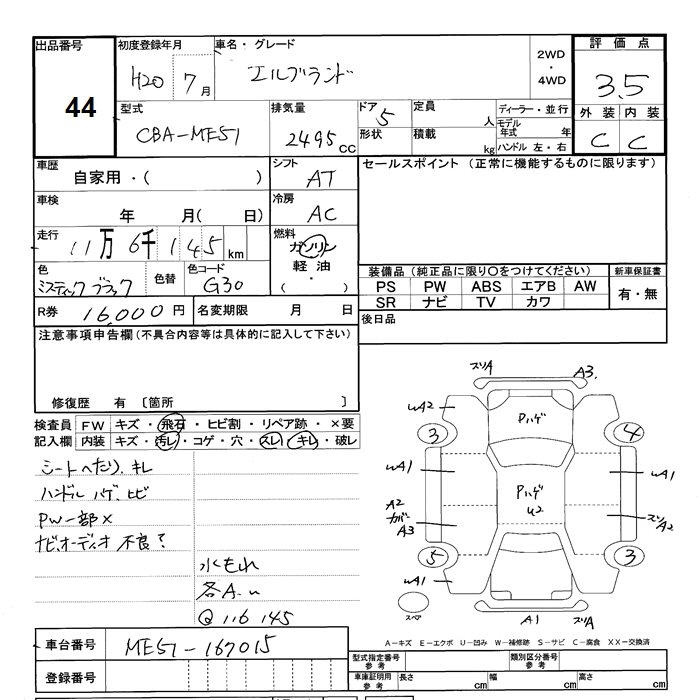 出品番号 初度登録年月 車名・グレード 2WD・4WD 評価点
44 H20 7月 エルグランド 3.5
外装 内装
C C
型式 排気量 ドア 定員 人 ディーラー・並行
CBA-ME51 2495cc 5
形状 積載 kg モデル年式 年
ハンドル 左・右
車歴 シフト セールスポイント (正常に機能するものに限ります)
自家用・( ) AT
車検 冷房
年 月( 日) AC
走行 燃料
11万6千145km ガソリン
軽油
( ・ )
色 色替 色コード
ミスティックブラック G30
装備品 (純正品に限り○をつけてください) 新車保証書
PS PW ABS エアB AW 有・無
SR ナビ TV カワ
R券 16,000円 名変期限 月 日
後日品
注意事項申告欄 (不具合内容等は具体的に記入して下さい)
修復歴 有 〔箇所 〕
検査員 FW キズ・飛石・ヒビ割・リペア跡・×要
記入欄 内装 キズ・汚レ・コゲ・穴・スレ・キレ・破レ
シートへたり、キレ
ハンドル ハゲ、ヒビ
PW一部×
ナビ、オーディオ 不良?
水もれ
各A.u
Q 116145
スリA A3.
uA2 Pハゲ
3 4
uA1 uA1
Pハゲ
u2
A2
カバー
A3 スリA2
5 3
uA1
スペア A1 スリA
A-キズ E-エクボ U-凹み W-補修跡 S-サビ C-腐食 XX-交換済
車台番号 ME51-167015
型式指定番号 参考 類別区分番号 参考
登録番号 車庫証明用 参考 長さ cm 幅 cm 高さ cm